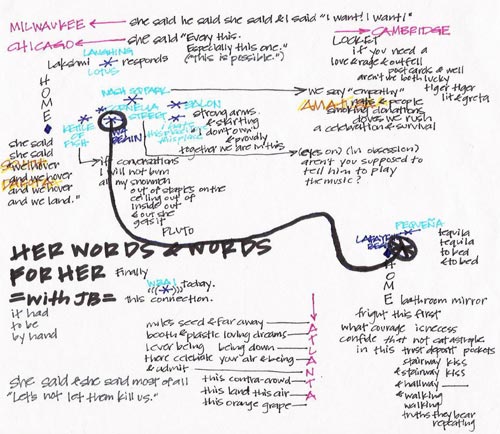 MILWAUKEE
she said he said she said & I said "I want! I want!"
CHICAGO
she said "Every this.
Especially this one."
("this is possible.")
CAMBRIDGE
LOCKET
if you need a
love & rage & outfell
post cards & well
aren't we both lucky
LAUGHING
LOTUS
Lakshmi
responds
HOME
NASH SQUARE
we say "empathy"
tiger tiger
lit & greta
AMA
& people
smoking donations
doves we rush
a celebration & survival
SALON
STREET
WE
BEGIN
KETTLE
OF
FISH
strong arms
& starting
"I don't own"
& proudly
together we are in this
(eyes on) (in obsession)
aren't you supposed to
tell him to play
the music?
she said
she said
we hover
and we hover
and we hover
and we land."
if conversations
I will not burn
all my snowmen
out of staples on the
ceiling out of
inside out
& out she
gets it
PLUTO
PEQUEÑA
tequila
tequila
to bed
& to bed
HOME
HER WORDS & WORDS
FOR HER
=with JB=
Finally
WBAI
((( ))) today.
this connection.
it had
to be
by hand
bathroom mirror
fright this first
what courage icness
confide that not catastrophe
in this trust deposit pockets
stairway kiss
& stairway kiss
& hallway
& walking
walking
truths they bear
repeating
ATLANTA
miles seed & far away
booth & plastic loving dreams
ever being being down
there celebrate your air & being
& admit
this contra-crowd
this land this air
this orange grape
she said & she said most of all
"Let's not let them kill us."